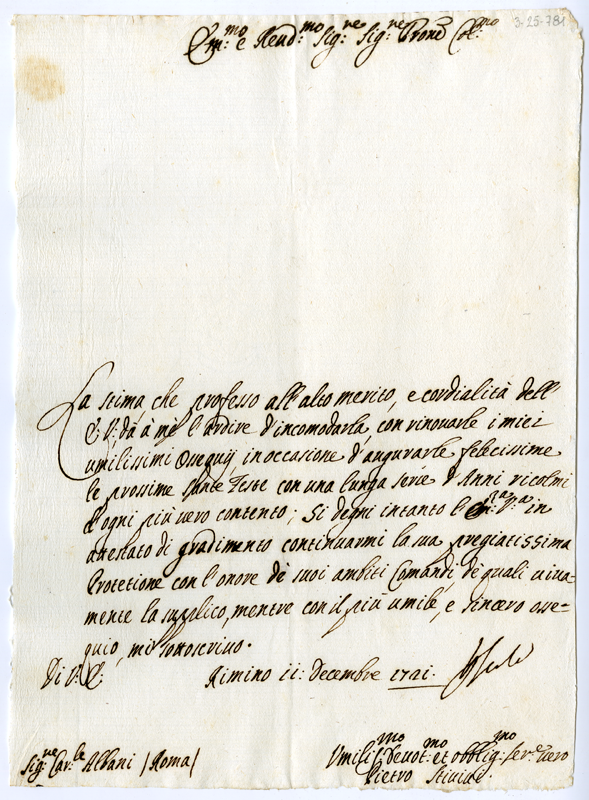 3-25-781
Em:mo e Reud:mo Sig:re Sig:re Prone Col:mo
La stima, che professo all'alto merito, e cordialità dell'
E: V: dà à mè l'ardire d'incomodarla, con rinouarle i miei
umilissimi Ossequij, in occasione d'augurarle felecissime
le prossime Sante Feste con una lunga serie d'Anni ricolmi
d'ogni più uero contento; Si degni intanto l'Em:za V:a in
attestato di gradimento continuarmi la sua pregiatissima
Protetione con l'onore dè suoi ambiti Comandi, dè quali uiua-
mente la supplico, mentre con il più umile, e sincero osse-
quio, mi sottoscriuo.
Di V: E:
Rimino 11: Decembre 1721:
Sig:re Car:le Albani / Roma /
Umilis:mo Deuot:mo et obblig:mo ser:e uero
Pietro